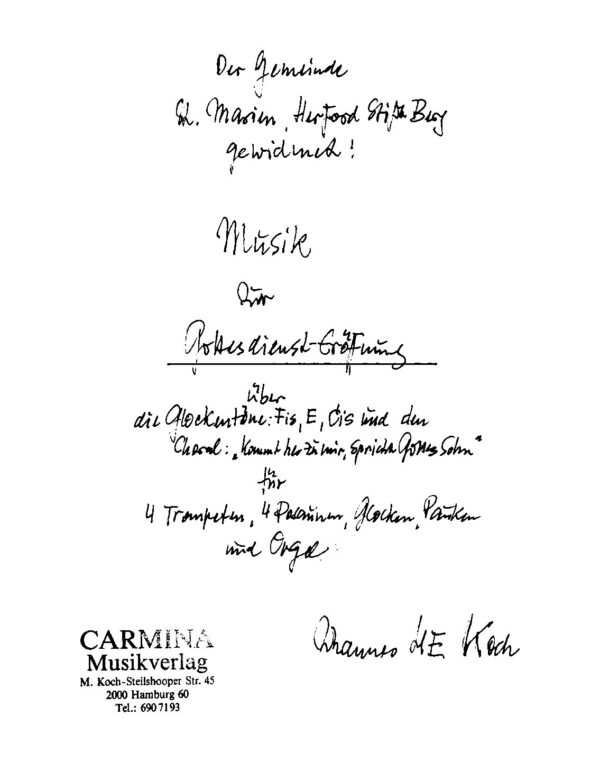 Der Gemeinde
St. Marien, Herford Stift Berg
gewidmet!
Musik
zur
Gottesdienst-Eröffnung
über
die Glockentöne: Fis, E, Cis und den
Choral: „Kommt her zu mir, spricht Gottes Sohn"
für
4 Trompeten, 4 Posaunen, Glocken, Pauken
und Orgel
Johannes H E Koch
CARMINA
Musikverlag
M. Koch-Steilshooper Str. 45
2000 Hamburg 60
Tel.: 6907193